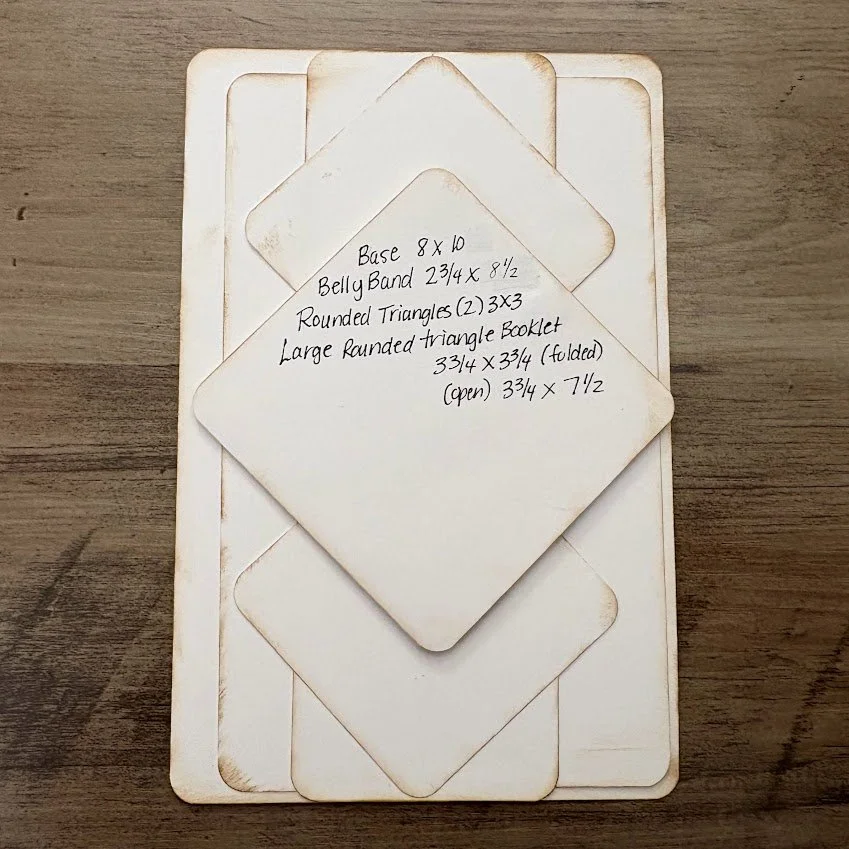 Base 8 x 10
Belly Band 2 3/4 x 8 1/2
Rounded Triangles (2) 3x3
Large Rounded triangle Booklet
3 3/4 x 3 3/4 (folded)
(open) 3 3/4 x 7 1/2